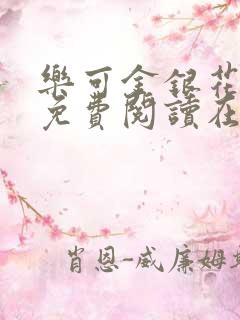 樂可金銀花
免費閱讀在
肖恩-威廉姆斯